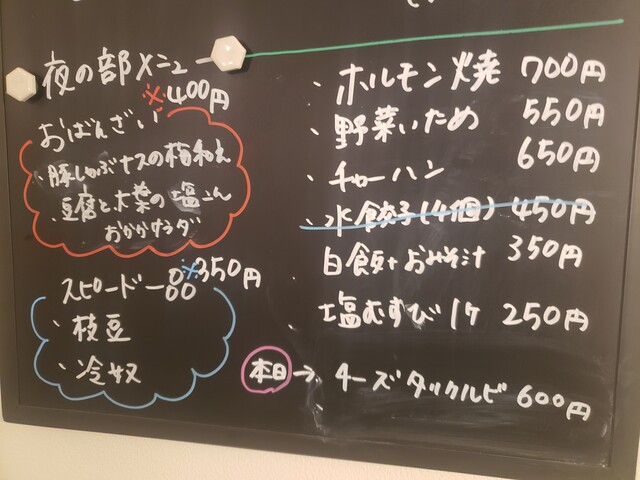 夜の部メニュー
おばんざい ※400円
・豚しゃぶナスの梅和え
・豆腐と大葉の塩こん
おかかサラダ
スピード一品 ※350円
・枝豆
・冷奴
・ホルモン焼 700円
・野菜いため 550円
・チャーハン 650円
・水餃子(4個) 450円
白飯+おみそ汁 350円
・塩むすび1ケ 250円
本日→ チーズタッカルビ 600円